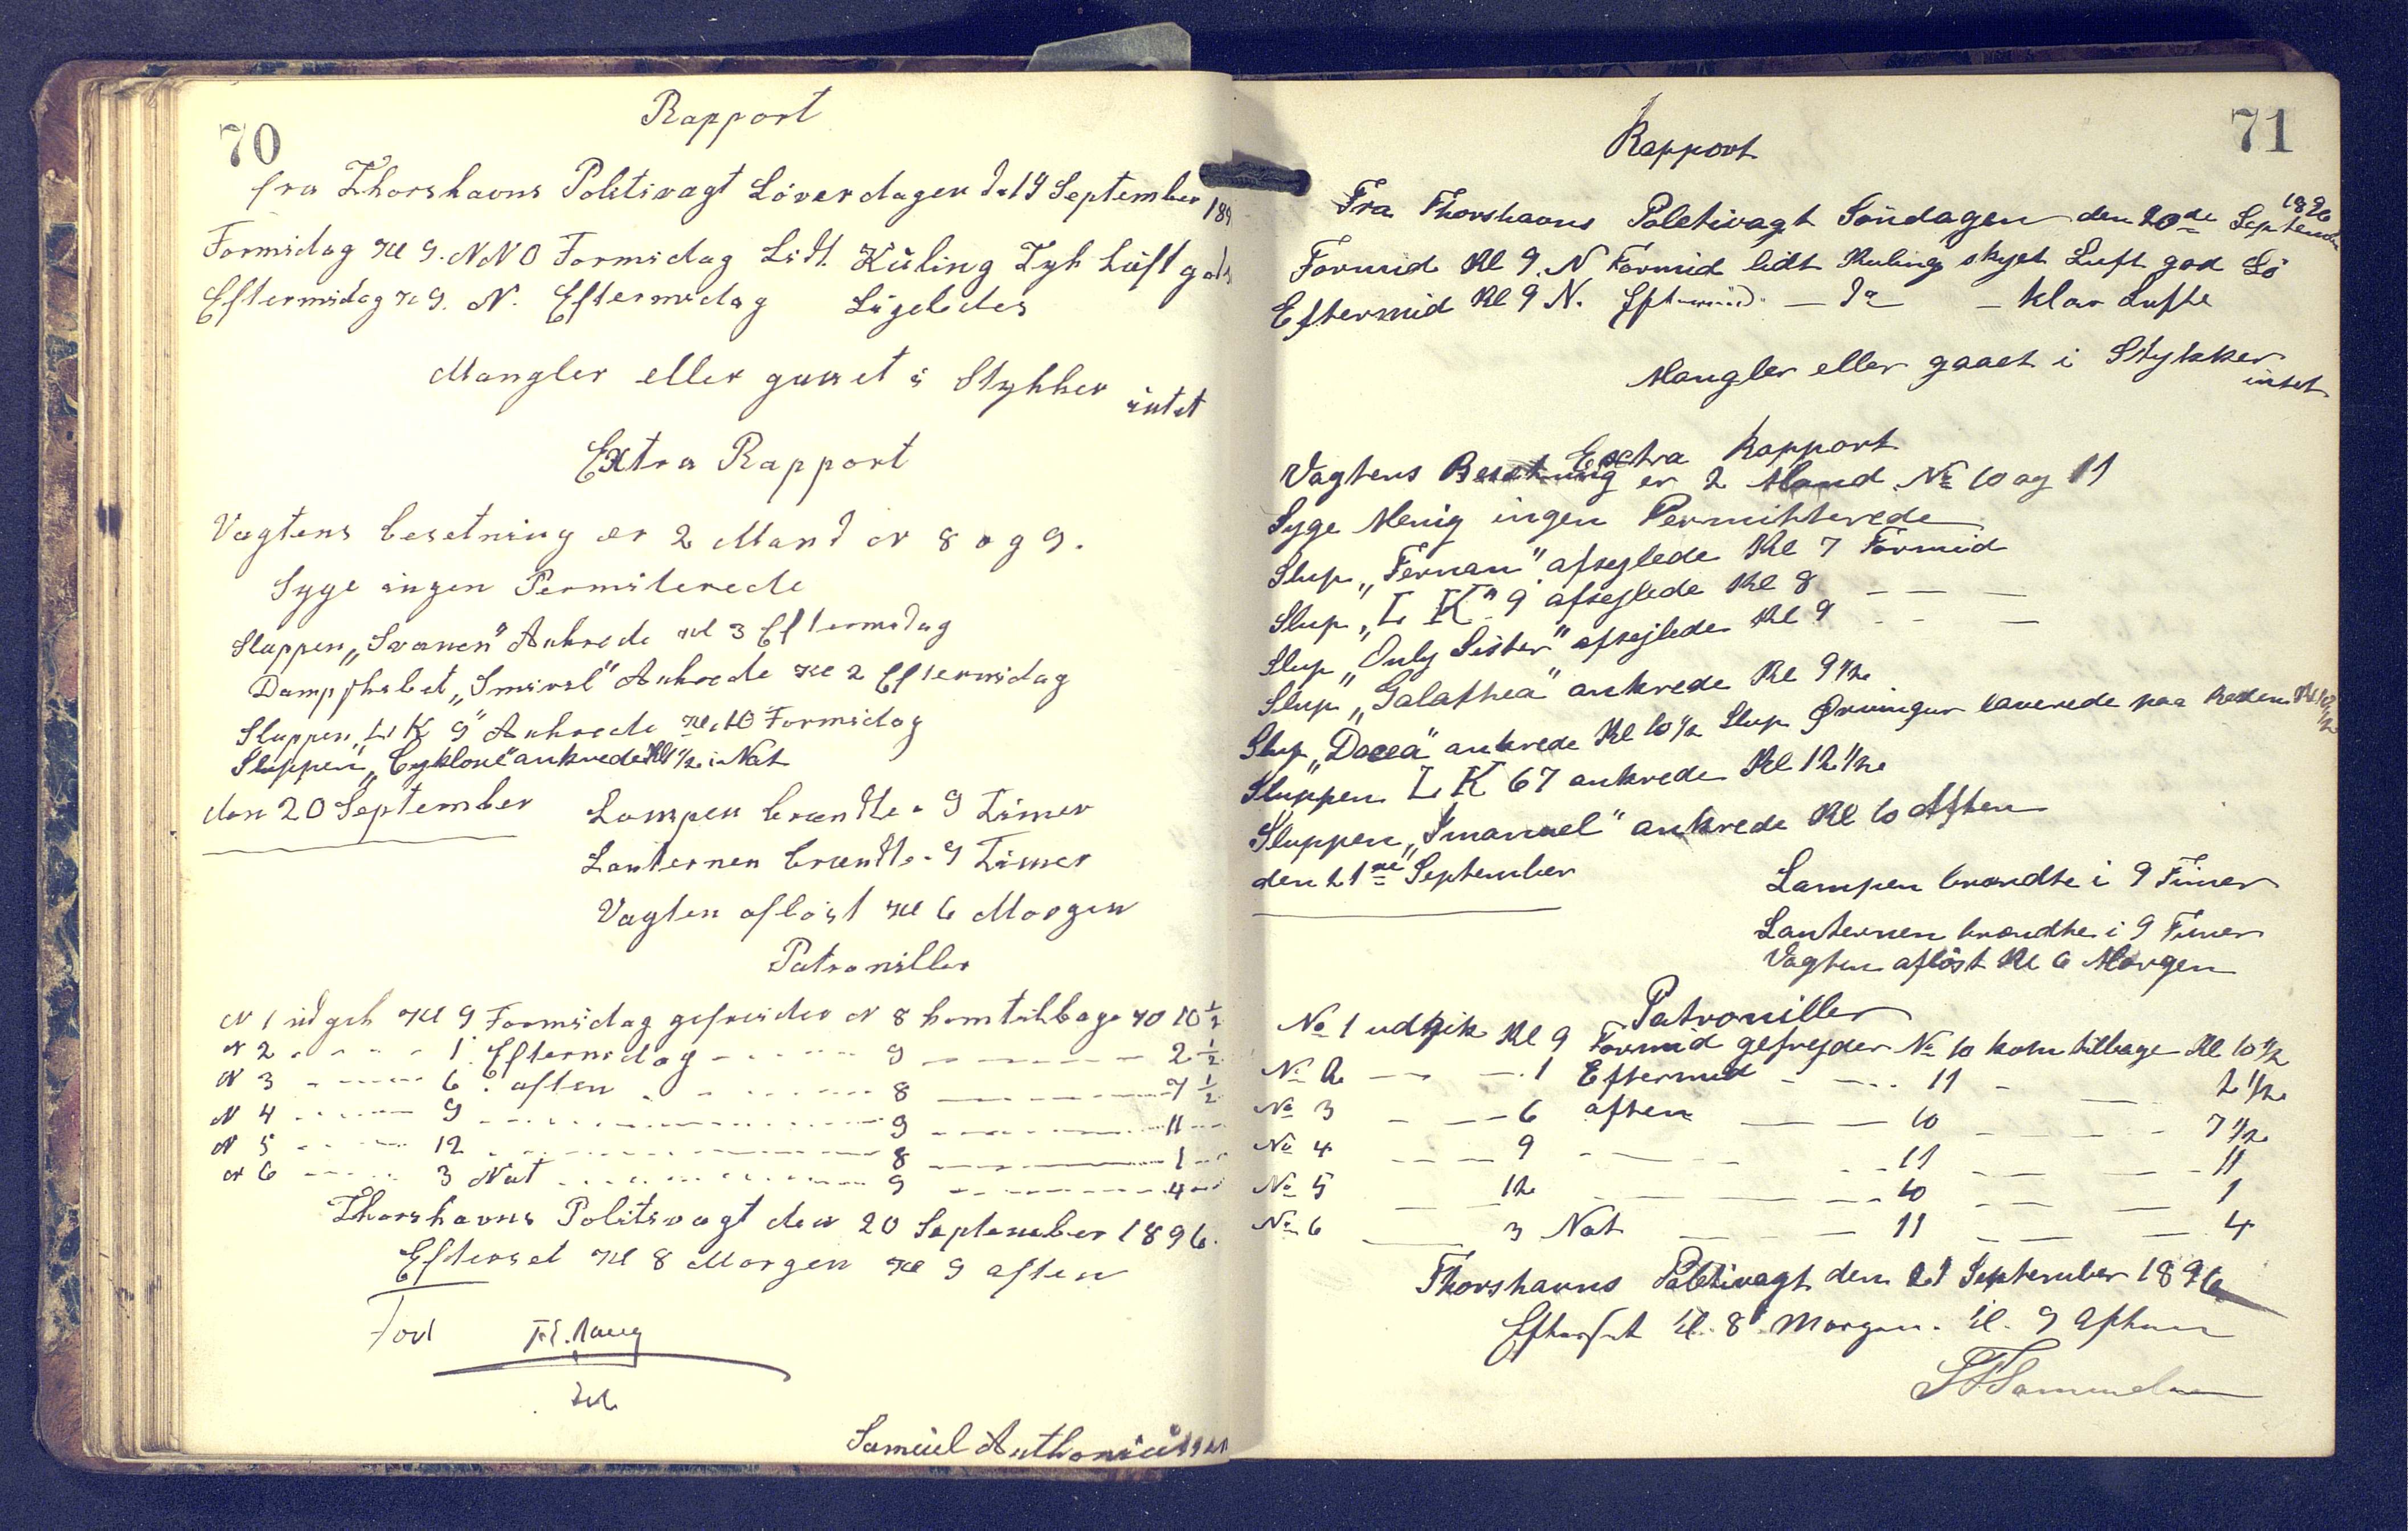 70
Rapport
fra Thorshavns Politivagt Löverdagen d. 19 September 189
Formidag Kl 9. NNO Formidag Lidt Küling Tyk Lüft god
Eftermidag Kl 9. N. Eftermidag Ligeledes
Mangler eller gaaet i Stykker intet
Extra Rapport
Vagtens besetning er 2 Mand N 8 og 9.
Syge ingen Permiterede
Sluppen „Svanen" Ankrede Kl 3 Eftermidag
Dampskibet „Smiral" Ankrede Kl 2 Eftermidag
Sluppen „L K 9" Ankrede Kl. 10 Formidag
Sluppen „Cyklone" ankrede Kl 1½ i Nat
den 20 September
Lampen brændte i 9 Timer
Lanternen brændte i 9 Timer
Vagten aflöst Kl 6 Morgen
Patroniller
N 1 udgik Kl 9 Formidag gefreider N 8 kom tilbage Kl 10 ½
N 2 - - - - 1 Eftermidag - - - - - 9 - - - - - 2 ½
N 3 - - - - 6 aften - - - - - 8 - - - - - 7 ½
N 4 - - - - 9 - - - - - 9 - - - - - 11 - -
N 5 - - - - 12 - - - - - 8 - - - - - 1 - -
N 6 - - - - 3 Nat - - - - - 9 - - - - - 4 - -
Thorshavns Politivagt den 20 September 1896.
Efterset Kl 8 Morgen Kl 9 aften
Samüel Anthonius
71
Rapport
Fra Thorshavns Poletivagt Söndagen den 20de September 1896
Formid Kl 9. N Formid lidt Kuling skyet Luft god Sö
Eftermid Kl 9 N. Eftermid. — do — klar Lufte
Mangler eller gaaet i Stykker intet
Extra Rapport
Vagtens Besetning er 2 Mand No 10 og 11
Syge Menig ingen Permitterede
Slup „Fernan" afsejlede Kl 7 Formid
Slup „L K" 9 afsejlede Kl 8 — — —
Slup „Only Sister" afsejlede Kl 9 - - —
Slup „Galathea" ankrede Kl 9 ½
Slup „Docea" ankrede Kl 10 ½ Slup Örvingur laverede paa Reden Kl 10½
Sluppen L K 67 ankrede Kl 12 ½
Sluppen „Imanuel" ankrede Kl 10 Aften
den 21ne September
Lampen brændte i 9 Timer
Lanternen brændte i 9 Timer
Vagten aflöst Kl 6 Morgen
Patroniller
No 1 udgik Kl 9 Formid gefrejder No 10 kom tilbage Kl 10 ½
No 2 — — 1 Eftermid - — 11 - — 2 ½
No 3 - — 6 aften — — 10 - — - 7 ½
No 4 — — 9 - — - 11 — — - 11
No 5 — — 12 — — - 10 - — — 1
No 6 — 3 Nat — — 11 - — — 4
Thorshavns Poletivagt den 21 September 1896
Efterset kl. 8 Morgen. kl. 9 Aften